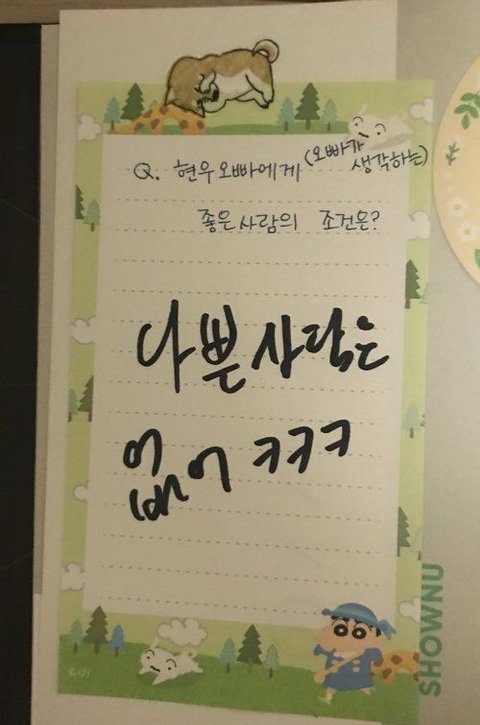 Q. 현우오빠에게 (오빠가 생각하는)
좋은사람의 조건은?
나쁜사람은
없어 ㅋㅋㅋ
SHOWNU